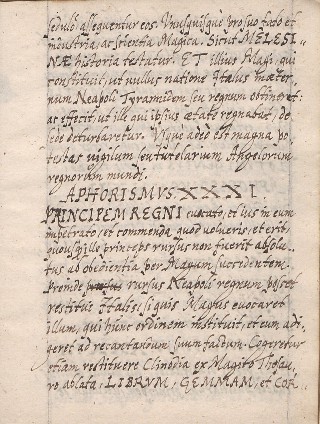 sedulò assequentur eos. Unusquisque pro suo fato et
industria, ac scientia Magica. Sicut MELESI-
NÆ historia testatur. ET illius Magi, qui
constituit, ut nullus natione Italus in æter-
num Neapoli Tyrannidem seu regnum obtineret:
ac effecit, ut ille qui ipsius ætate regnabat, de
sede deturbaretur. Vsque adeo est magna po-
testas vigilum seu tutelarium Angelorum
regnorum mundi.
APHORISMVS XXXI.
PRINCIPEM REGNI euocato, et ius in eum
impetrato, et commenda quod volueris, et erit,
quousq; ille princeps rursus non fuerit absolu-
tus ab obedientia per Magum succedentem.
proinde rursus Neapoli regnum potest
restitui Italis, si quis Magus euocaret
illum, qui hunc ordinem instituit, et eum adi-
geret ad recantandum suum factum. Cogeretur
etiam restituere Clinodia ex Magico Thesau-
ro ablata, LIBRVM, GEMMAM, et COR-